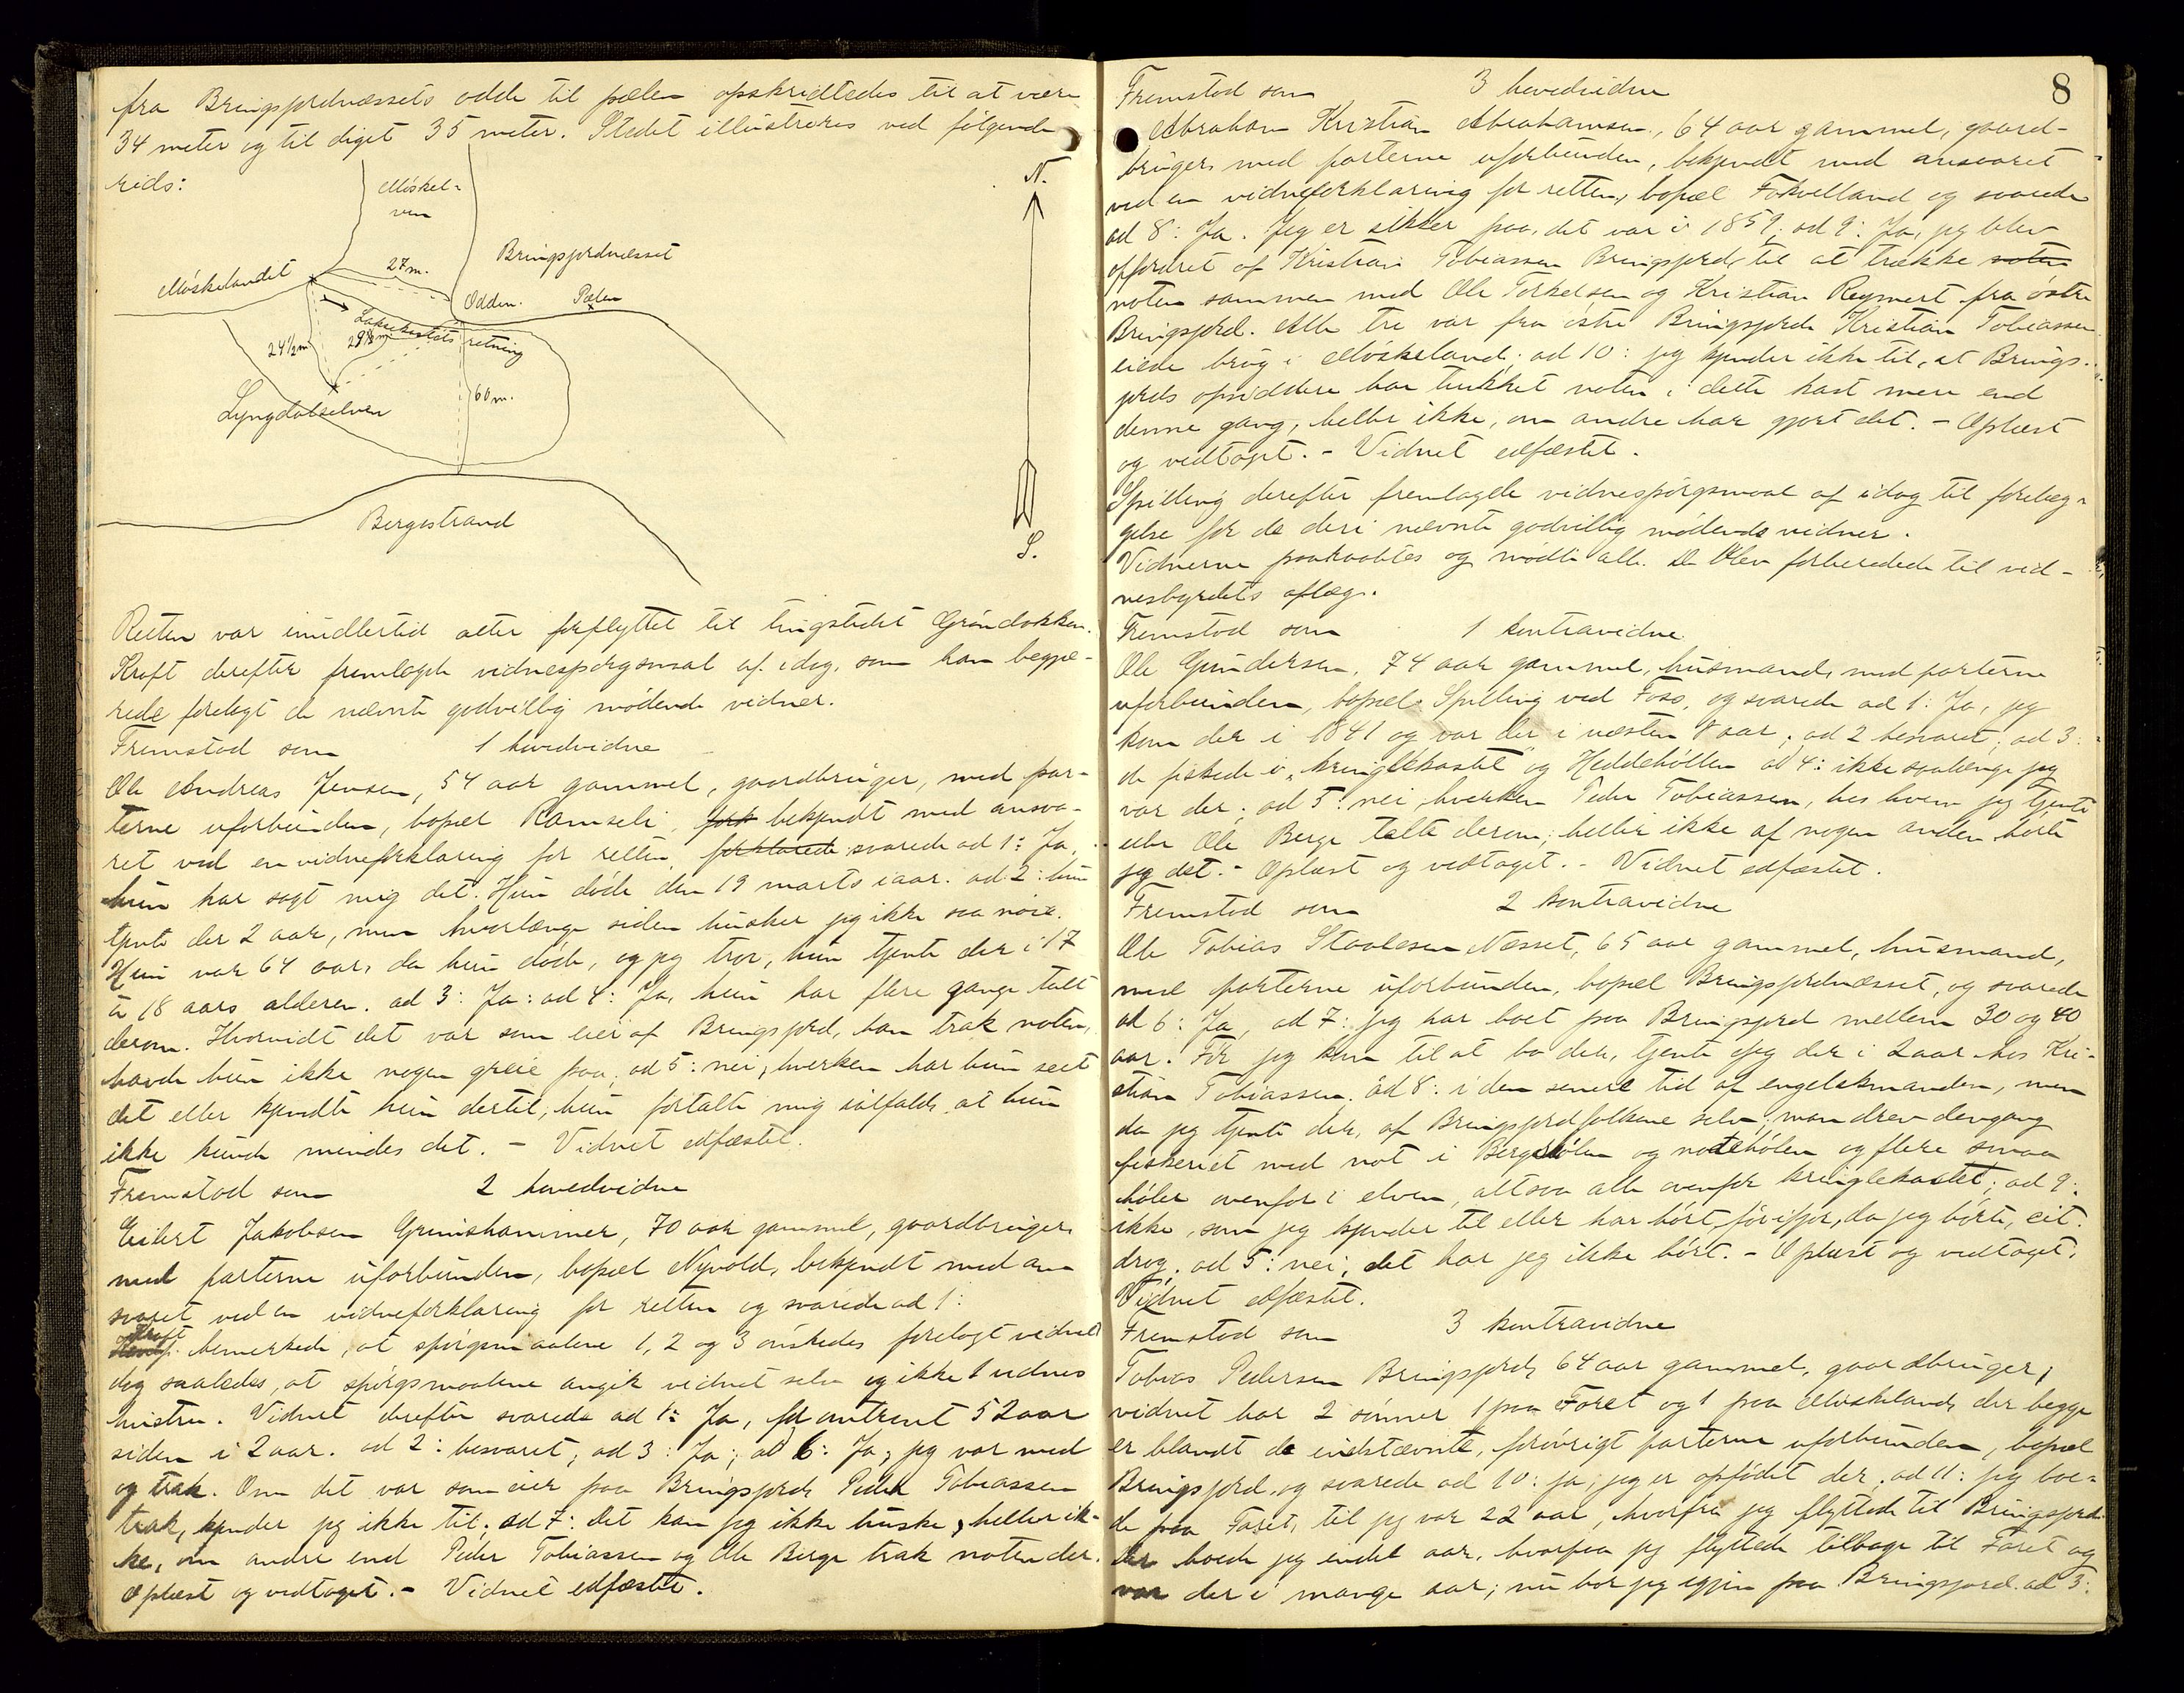 fra Bringsjordnæssets odde til pælen opskridtedes til at være
34 meter og til diget 35 meter. Stedet illustreres ved følgende
rids:
N.
Møskel-
ven
Bringsjordnæsset
27 m.
Møskelandet
Odden.
Pælen
Laksekastets retning
24½ m
28½ m
60 m.
Lyngdalselven
Bergestrand
S.
Retten var imidlertid atter forflyttet til tingstedet Grøndokken.
Kroft derefter fremlagde vidnespørgsmaal af idag, som han begjæ-
rede forelagt de nævnte godvillig mødende vidner.
Fremstod som 1 hovedvidne
Ole Andreas Jensen, 54 aar gammel, gaardbruger, med par-
terne uforbunden, bopæl Ramseli, fork bekjendt med ansva-
ret ved en vidneforklaring for retten, forklarede svarede ad 1: Ja,
hun har sagt mig det. Hun døde den 19 marts iaar. ad 2: hun
tjente der 2 aar, men hvorlænge siden husker jeg ikke saa nøie.
Hun var 64 aar, da hun døde, og jeg tror, hun tjente der i 17
à 18 aars alderen. ad 3: Ja: ad 4: Ja, hun har flere gange talt
derom. Hvorvidt det var som eier af Bringsjord, han trak noten,
havde hun ikke nogen greie paa. ad 5: nei, hverken har hun seet
det eller kjendte hun dertil, hun fortalte mig ialfald, at hun
ikke kunde mindes det. - Vidnet edfæstet.
Fremstod som 2 hovedvidne
Eilert Jakobsen Grunshammer, 70 aar gammel, gaardbruger,
med parterne uforbunden, bopæl Nyvold, bekjendt med an-
svaret ved en vidneforklaring for retten og svarede ad 1:
Kroft bemerkede, at spørgsmaalene 1, 2 og 3 ønskedes forelagt vidnet
dog saaledes, at spørgsmaalene angik vidnet selv og ikke 1 vidnes
hustru. Vidnet derefter svarede ad 1: Ja, for omtrent 52 aar
siden i 2 aar. ad 2: besvaret; ad 3: Ja; ad 6: Ja, jeg var med
og trak. Om det var som eier paa Bringsjord, Peder Tobiassen
trak, kjender jeg ikke til. ad 7: det kan jeg ikke huske, heller ik-
ke, om andre end Peder Tobiassen og Ole Berge trak noten der.
Oplæst og vedtaget. - Vidnet edfæstet.
8
Fremstod som 3 hovedvidne
Abraham Kristian Abrahamsen, 64 aar gammel, gaard-
bruger, med parterne uforbunden, bekjendt med ansvaret
ved en vidneforklaring for retten, bopæl Fokselland og svarede
ad 8: Ja. Jeg er sikker paa, det var i 1859. ad 9: Ja, jeg blev
opfordret af Kristian Tobiassen Bringsjord til at trække noten
noten sammen med Ole Torkelsen og Kristian Reymert fra østre
Bringsjord. Alle tre var fra østre Bringsjord. Kristian Tobiassen
eiede brug i Møskeland. ad 10: jeg kjender ikke til, at Brings-
jords opsiddere har trukket noten i dette kast mere end
denne gang, heller ikke, om andre har gjort det. - Oplæst
og vedtaget. - Vidnet edfæstet.
Spilling derefter fremlagde vidnespørgsmaal af idag til forelæg-
gelse for de deri nævnte godvillig mødende vidner.
Vidnerne paakaabtes og mødte alle. De blev forberedede til vid-
nesbyrdets aflæg.
Fremstod som 1 kontravidne
Ole Gundersen, 74 aar gammel, husmand, med parterne
uforbunden, bopæl Spilling ved Foss, og svarede ad 1: Ja, jeg
kom der i 1841 og var der i næsten 8 aar; ad 2 besvaret; ad 3:
de fiskede i "kringlekastet" og Heddehøllen ad 4: ikke saalænge jeg
var der; ad 5: nei, hverken Peder Tobiassen, hos hvem jeg tjente
eller Ole Berge talte derom; heller ikke af nogen anden hørte
jeg det. - Oplæst og vedtaget. - Vidnet edfæstet.
Fremstod som 2 kontravidne
Ole Tobias Staalesen Næsset, 65 aar gammel, husmand,
med parterne uforbunden, bopæl Bringsjordnæsset, og svarede
ad 6: Ja, ad 7: jeg har boet paa Bringsjord mellem 30 og 40
aar. Før jeg kom til at bo der, tjente jeg der i 2 aar hos Kri-
stian Tobiassen. ad 8: i den senere tid af engelskmanden, men
da jeg tjente der, af Bringsjordfolkene selv; man drev dengang
fiskeriet med not i Bergehølen og notehølen og flere smaa
høler ovenfor i elven, altsaa alle ovenfor kringlekastet; ad 9:
ikke, som jeg kjender til eller har hørt, før ifjor, da jeg hørte, eit
drog. ad 5: nei, det har jeg ikke hørt. - Oplæst og vedtaget.
Vidnet edfæstet.
Fremstod som 3 kontravidne
Tobias Pedersen Bringsjord, 64 aar gammel, gaardbruger,
vidnet har 2 sønner 1 paa Faret og 1 paa Møskeland, der begge
er blandt de indstævnte, forøvrigt parterne uforbunden, bopæl
Bringsjord, og svarede ad 10: ja, jeg er opfødet der, ad 11: jeg boe-
de paa Faret, til jeg var 22 aar, hvorfra jeg flyttede til Bringsjord.
Der boede jeg endel aar, hvorpaa jeg flyttede tilbage til Faret og
var der i mange aar; nu bor jeg igjen paa Bringsjord. ad 3: